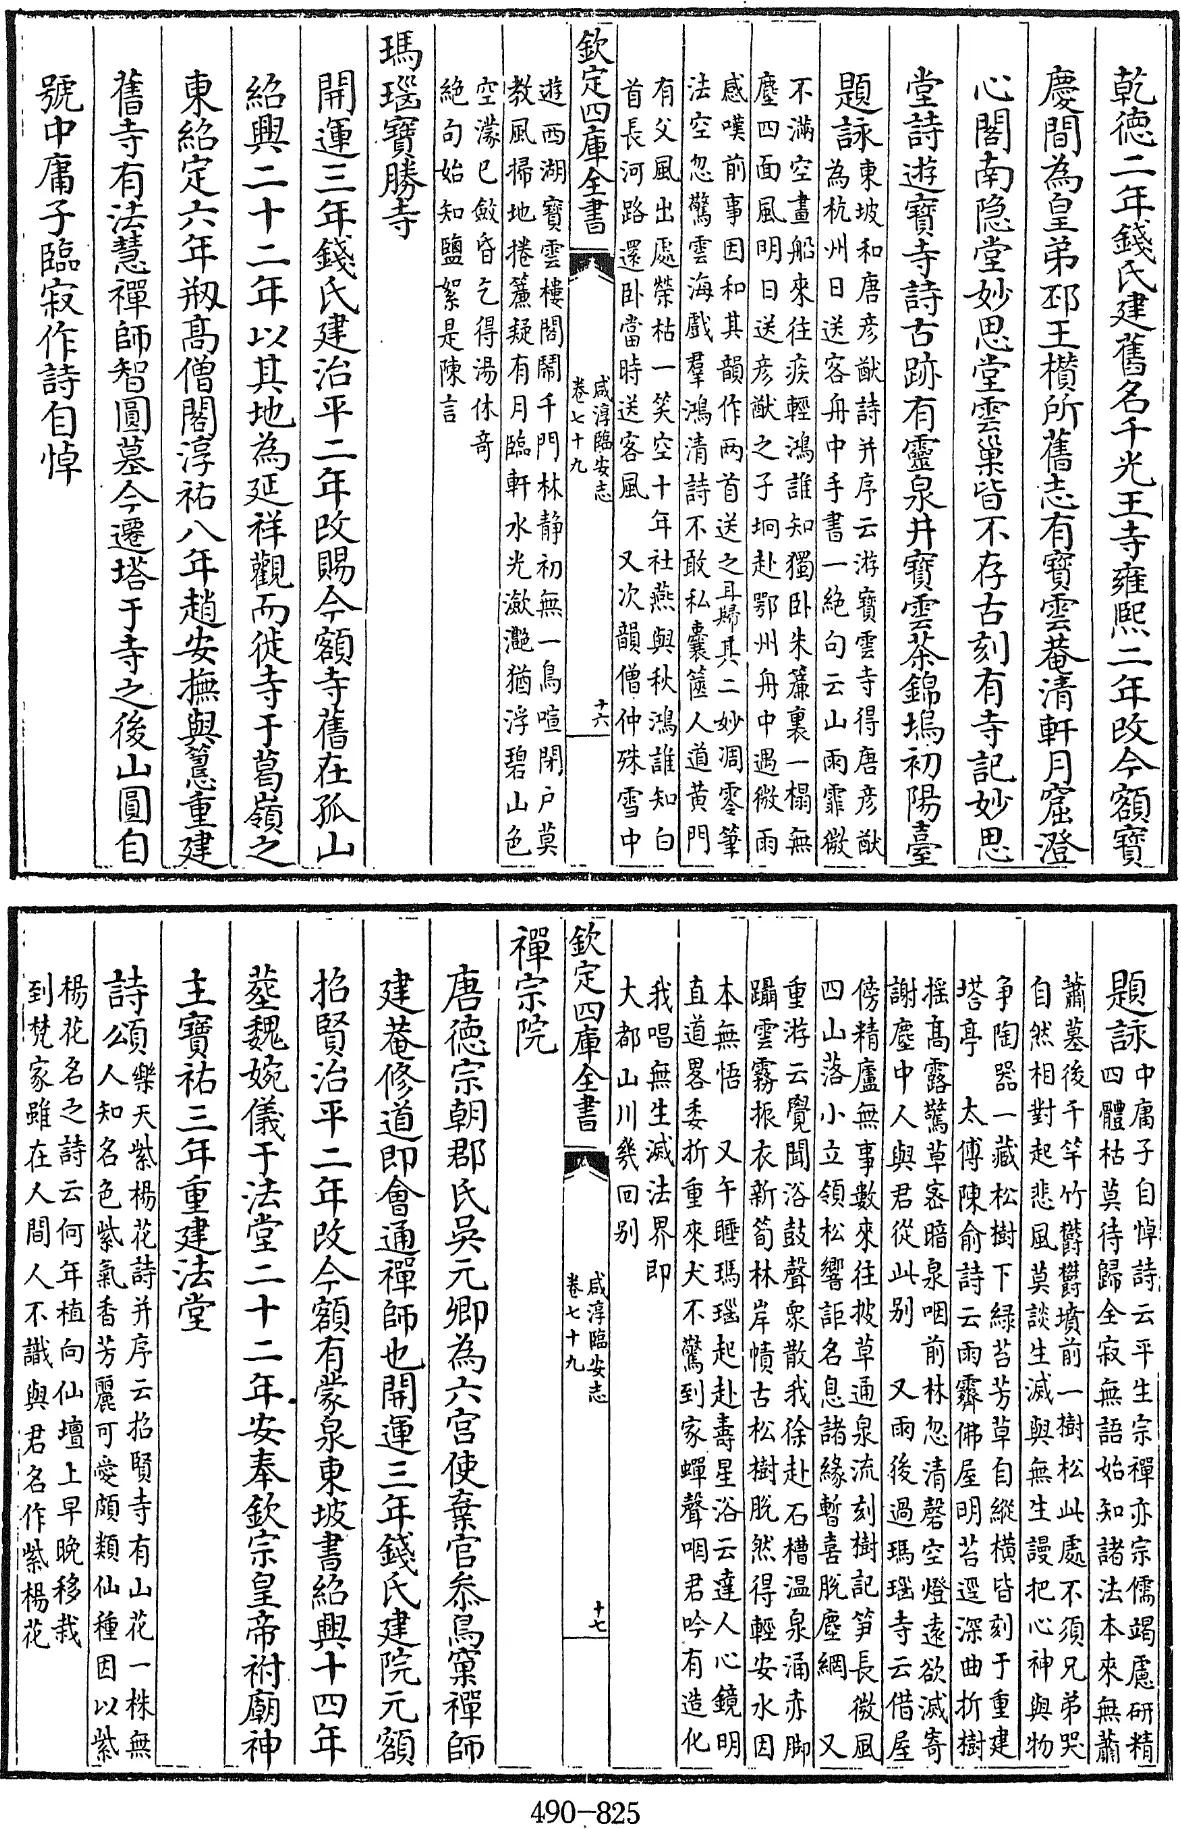 乾德二年錢氏建舊名千光王寺雍熙二年改今額寶
慶間為皇弟邳王欑所舊志有寶雲菴清軒月窟澄
心閣南隐堂妙思堂雲巢皆不存古刻有寺記妙思
堂詩遊寶寺詩古跡有靈泉井寶雲茶錦塢初陽臺
題詠
東坡和唐彦猷詩并序云游寶雲寺得唐彦猷
為杭州日送客舟中手書一絶句云山雨霏微
不滿空畫船來往疾輕鴻誰知獨卧朱簾裏一榻無
塵四面風明日送彦猷之子坰赴鄂州舟中遇微雨
感嘆前事因和其韻作兩首送之且歸其二妙凋零筆
法空忽驚雲海戲羣鴻清詩不敢私囊篋人道黄門
有父風出處榮枯一笑空十年社燕與秋鴻誰知白
首長河路還卧當時送客風 又次韻僧仲殊雪中
欽定四庫全書
咸淳臨安志
卷七十九
十六
遊西湖寶雲樓閣鬧千門林静初無一鳥喧閉户莫
教風掃地捲簾疑有月臨軒水光瀲灧猶浮碧山色
空濛已斂昏乞得湯休竒
絶句始知鹽絮是陳言
瑪瑙寶勝寺
開運三年錢氏建治平二年改賜今額寺舊在孤山
紹興二十二年以其地為延祥觀而徙寺于葛嶺之
東紹定六年剏高僧閣淳祐八年趙安撫與𥲅重建
舊寺有法慧禪師智圓墓今遷塔于寺之後山圓自
號中庸子臨寂作詩自悼
題詠
中庸子自悼詩云平生宗禪亦宗儒竭慮研精
四體枯莫待歸全寂無語始知諸法本來無蕭
蕭墓後千竿竹欝欝墳前一樹松此處不須兄弟哭
自然相對起悲風莫談生滅與無生謾把心神與物
争陶器一藏松樹下緑苔芳草自縱橫皆刻于重建
塔亭 太傅陳俞詩云雨霽佛屋明苔逕深曲折樹
揺髙露驚草宻暗泉咽前林忽清磬空燈遠欲滅寄
謝塵中人與君從此别 又雨後過瑪瑙寺云借屋
傍精廬無事數來往披草通泉流刻樹記笋長微風
四山落小立領松響詎名息諸緣暫喜脱塵網 又
重游云覺聞浴鼓聲衆散我徐赴石槽温泉涌赤脚
躡雲霧振衣新荀林岸幘古松樹脱然得輕安水因
本無悟 又午睡瑪瑙起赴壽星浴云達人心鏡明
直道畧委折重來犬不驚到家蟬聲咽君吟有造化
我唱無生滅法界即
大都山川幾回别
欽定四庫全書
咸淳臨安志
卷七十九
十七
禪宗院
唐德宗朝郡氏吳元卿為六宫使棄官叅鳥窠禪師
建菴修道即會通禪師也開運三年錢氏建院元額
招賢治平二年改今額有蒙泉東坡書紹興十四年
塟魏婉儀于法堂二十二年安奉欽宗皇帝祔廟神
主寶祐三年重建法堂
詩頌
樂天紫楊花詩并序云招賢寺有山花一株無
人知名色紫氣香芳麗可愛頗類仙種因以紫
楊花名之詩云何年植向仙壇上早晚移栽
到梵家雖在人間人不識與君名作紫楊花
490-825